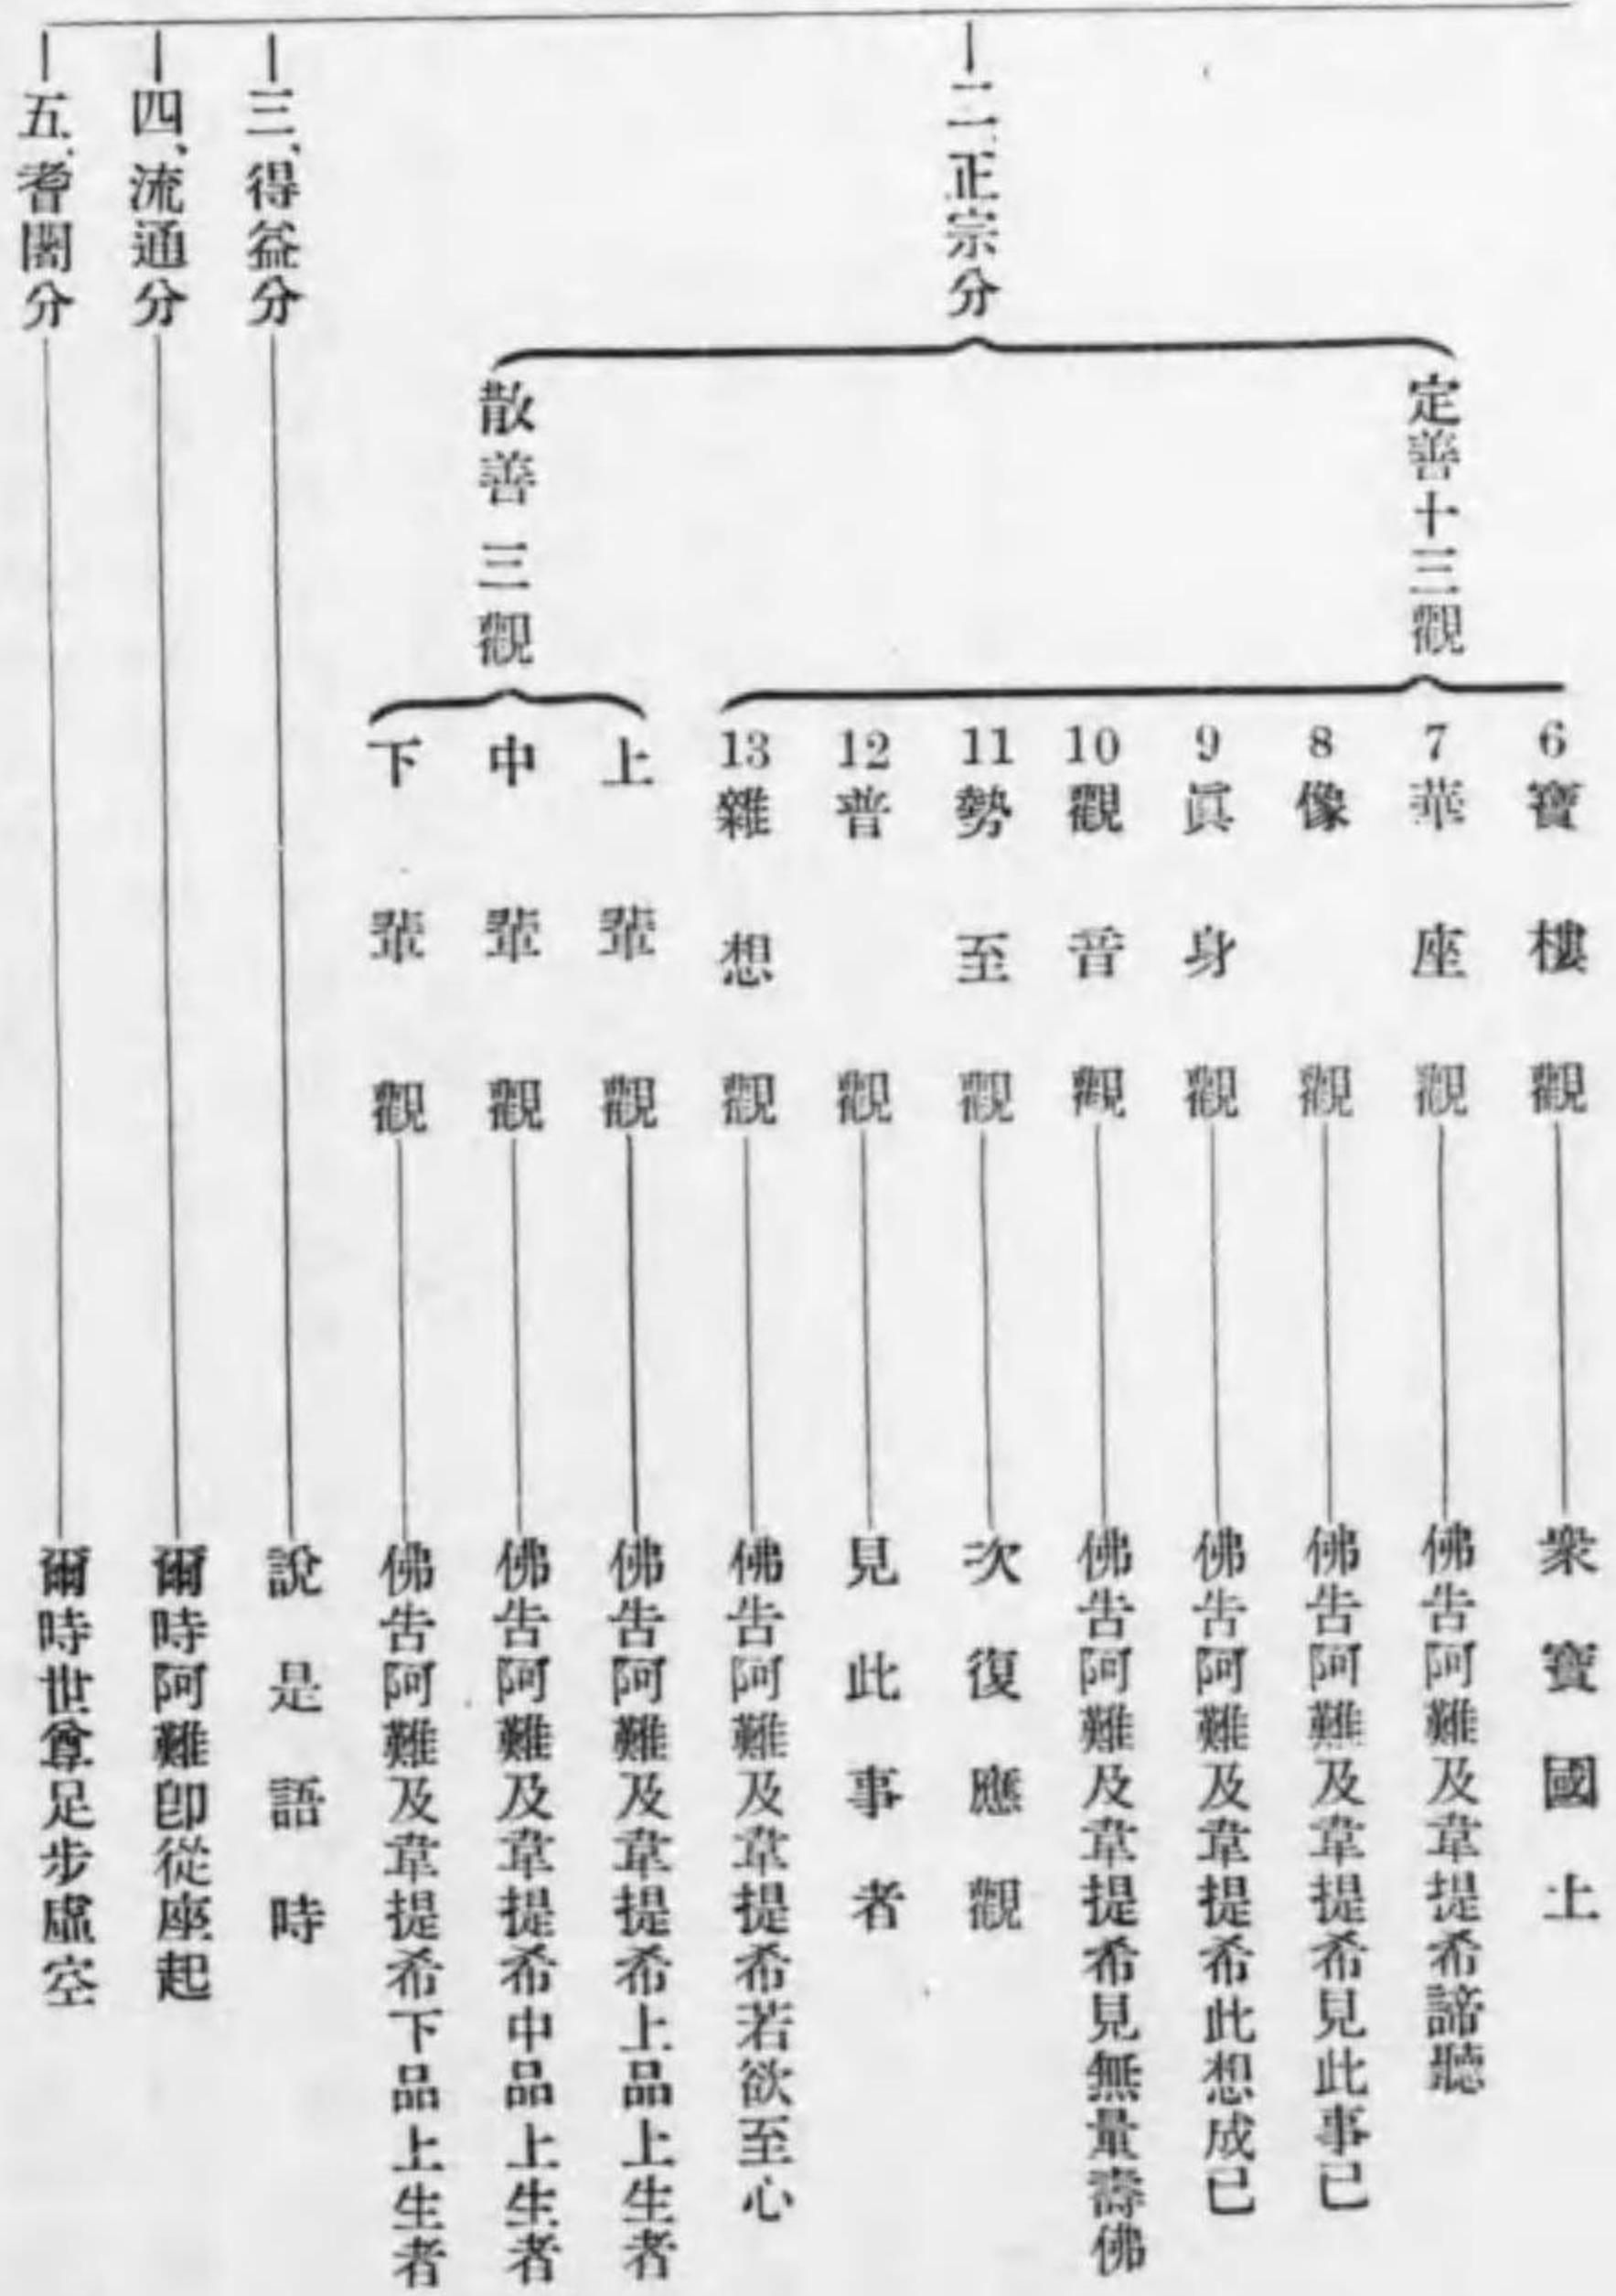 二、正宗分
定善十三觀
6 寶樓觀 衆寶國土
7 華座觀 佛告阿難及韋提希諦聽
8 像觀 佛告阿難及韋提希見此事已
9 眞身觀 佛告阿難及韋提希此想成已
10 觀音觀 佛告阿難及韋提希見無量壽佛
11 勢至觀 次復應觀
12 普觀 見此事者
13 雜想觀 佛告阿難及韋提希若欲至心
散善三觀
上輩觀 佛告阿難及韋提希上品上生者
中輩觀 佛告阿難及韋提希中品上生者
下輩觀 佛告阿難及韋提希下品上生者
三、得益分 說是語時
四、流通分 爾時阿難卽從座起
五、耆闍分 爾時世尊足步虛空